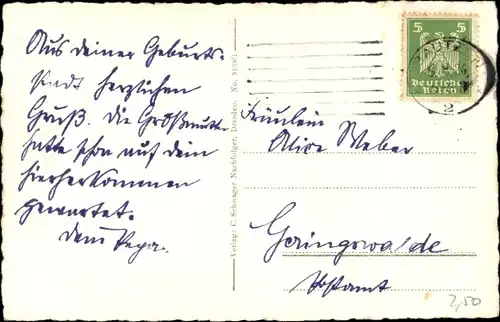 Aus deiner Geburts-
stadt herzlichen
Gruß. Die Großmutter
hatte schon auf dein
hierherkommen
gewartet.
Dein Papa.
Verlag: C. Schwager Nachfolger, Dresden. No.
5 5
Deutsches
Reich
2
Fräulein
Alice Weber
Geringswalde
Postamt
2,50